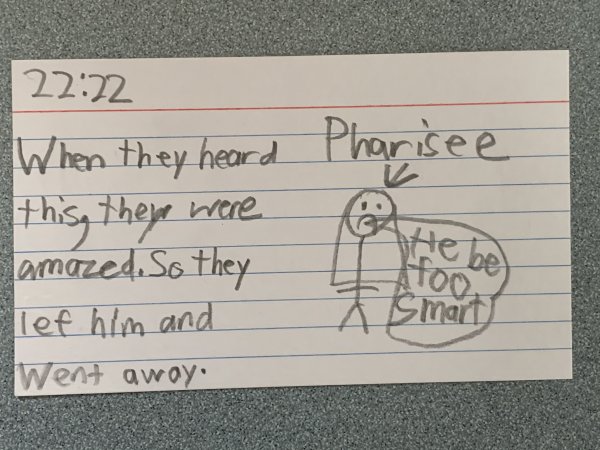 22:22
When they heard
this, they were
amazed. So they
lef him and
Went away.
Pharisee
He be
too
Smart